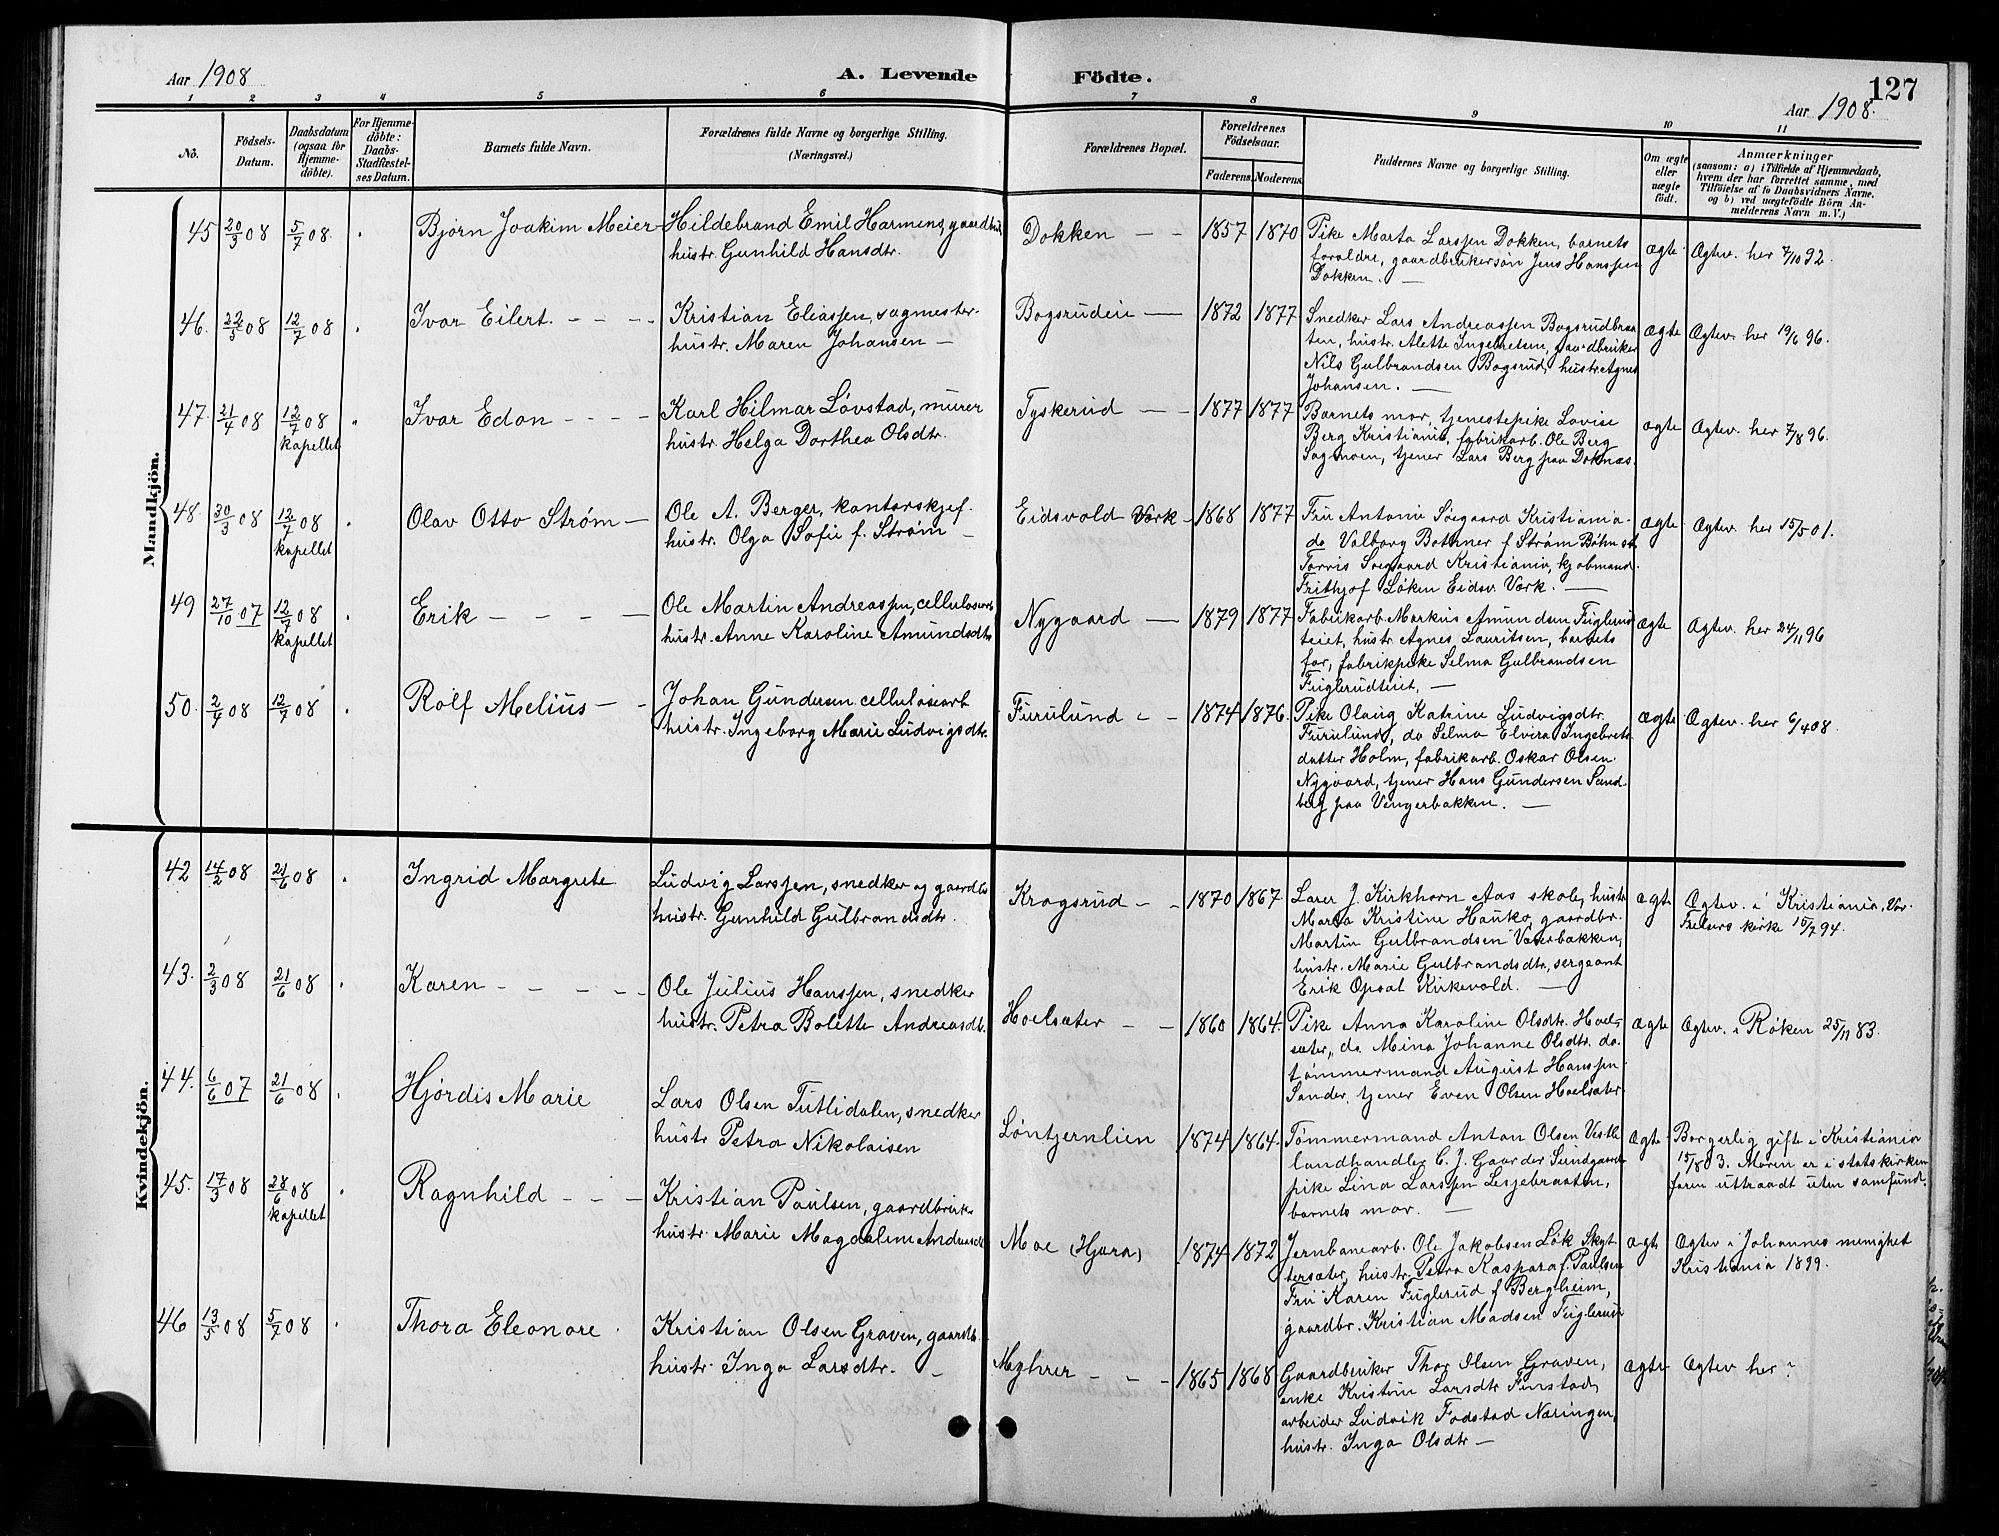 Aar 1908
A. Levende Födte.
127
Aar 1908.
1 2 3 4 5 6 7 8 9 10 11
No.
Födsels-
Datum.
Daabsdatum
(ogsaa for
Hjemme-
döbte).
For Hjemme-
döbte:
Daabs-
Stadfæstel-
ses Datum.
Barnets fulde Navn.
Forældrenes fulde Navne og borgerlige Stilling.
(Næringsvei.)
Forældrenes Bopæl.
Forældrenes
Födselsaar.
Faderens. Moderens.
Faddernes Navne og borgerlige Stilling.
Om ægte
eller
uægte
födt.
Anmærkninger
(saasom: a) i Tilfælde af Hjemmedaab,
hvem der har forrettet samme, med
Tilföielse af to Daabsvidners Navne.
og b) ved uægtefödte Börn An-
melderens Navn m. V.)
Mandkjön.
45 20/3 08 5/7 08. Bjørn Joakim Meier
Hildebrand Emil Harmens, gaardbr.
hustr. Gunhild Hansdtr.
Dokken - - 1857 1870
Pike Marta Larsen Dokken, barnets
foraldre, gaardbrukersøn Jens Hanssen
Dokken. —
ægte Ægtev. her 7/10 92.
46. 22/5 08 12/7 08 Ivar Eilert. - - -
Kristian Eliassen, sagmester.
hustr. Maren Johansen —
Bogsrudeie — 1872 1877
Snedker Lars Andreassen Bogsrudbraa
ten, hustr. Alette Ingebretsen, gaardbruker
Nils Gulbrandsen Bogsrud, hustr. Agnes
Johansen. —
ægte Ægtev. her 19/6 96.
47. 21/4 08 12/7 08
kapellet
Ivar Edon - - -
Karl Hilmar Løvstad, murer
hustr. Helga Dorthea Olsdtr.
Tyskerud — 1877 1877
Barnets mor, tjenestepike Lovise
Berg Kristiania, fabrikarb. Ole Berg
Sagmoen, tjener Lars Berg paa Doknæs.
ægte Ægtev. her 7/8 96.
48. 30/3 08 12/7 08
kapellet
Olav Otto Strøm —
Ole A. Berger, kontorskjef.
hustr. Olga Sofie f. Strøm —
Eidsvold Værk - 1868 1877
Fru Antonie Soegaard Kristiania.
do Valborg Bothner f Strøm Bøhn st
Torris Soegaard Kristiania, kjøbmand.
Frithjof Løken Eidsv. Værk. —
ægte. Ægtev. her 15/5 01.
49 27/10 07 12/7 08
kapellet
Erik - - - -
Ole Martin Andreassen, cellulosearb
hustr. Anne Karoline Amundsdtr
Nygaard — 1879 1877
Fabrikarb. Markus Amundsen Fuglerud
teiet, hustr Agnes Lauritsen, barnets
far, fabrikpike Selma Gulbrandsen
Fuglerudteiet. —
ægte Ægtev. her 24/11 96
50. 2/4 08 12/7 08. Rolf Melius - -
Johan Gundersen cellulosearb
hustr. Ingeborg Marie Ludvigsdtr.
Furulund - - 1874 1876.
Pike Olaug Katrine Ludvigsdtr.
Furulund, do Selma Elvira Ingebrets
datter Holm, fabrikarb. Oskar Olsen
Nygaard, tjener Hans Gundersen Sand
berg paa Vengerbakken. —
ægte Ægtev. her 6/4 08.
Kvindekjön.
42 14/2 08 21/6 08. Ingrid Margrete
Ludvig Larssen, snedker og gaardbr
hustr. Gunhild Gulbrandsdtr.
Krogsrud - - 1870 1867
Lærer J. Kirkhorn Aas skole, hustr
Marta Kristine Hauko, gaardbr.
Martin Gulbrandsen Væserbakken,
hustr. Marie Gulbrandsdtr, sergeant
Erik Opsal Kirkevold. —
ægte Ægtev. i Kristiania, Vor
Frelsers kirke 15/7 94.
43. 2/3 08 21/6 08. Karen - - - -
Ole Julius Hanssen, snedker
hustr. Petra Bolette Andreasdtr.
Hoelsæter - - 1860 1864.
Pike Anna Karoline Olsdtr. Hoel-
sæter, do. Mina Johanne Olsdtr. do.
tømmermand August Hanssen
Sander, tjener Even Olsen Hoelsæter
ægte Ægtev. i Røken 25/11 83.
44. 6/6 07 21/6 08. Hjørdis Marie
Lars Olsen Tutlidalen, snedker
hustr Petra Nikolaisen
Løntjernlien 1874 1864.
Tømmermand Anton Olsen Vestli
landhandler C. J. Gaarder Sundgaard
pike Lina Larssen Lesjebraaten,
barnets mor. —
Ægte. Borgerlig gifte i Kristiania
15/8 03. Moren er i statskirken
faren uttraadt uten samfund.
45. 17/3 08 28/6 08
kapellet
Ragnhild - - -
Kristian Paulsen, gaardbruker
hustr. Marie Magdalene Andreasdt
Moe (Hjera) 1874 1872
Jernbanearb. Ole Jakobsen Løk Skyt
tersæter, hustr. Petra Kaspara f. Paulsen
Fru Karen Fuglerud f Bergheim,
gaardbr. Kristian Madsen Fuglerud
ægte Ægtev i Johannes menighet
Kristiania 1899.
46 13/5 08 5/7 08. Thora Eleonore.
Kristian Olsen Graven, gaardb.
hustr. Inga Larsdtr. —
Myhrer - - - 1865 1868
Gaardbruker Thor Olsen Graven,
enke Kristine Larsdtr Finstad,
arbeider Ludvik Fodstad Næringen,
hustr. Inga Olsdtr —
Ægte Ægtev her ?